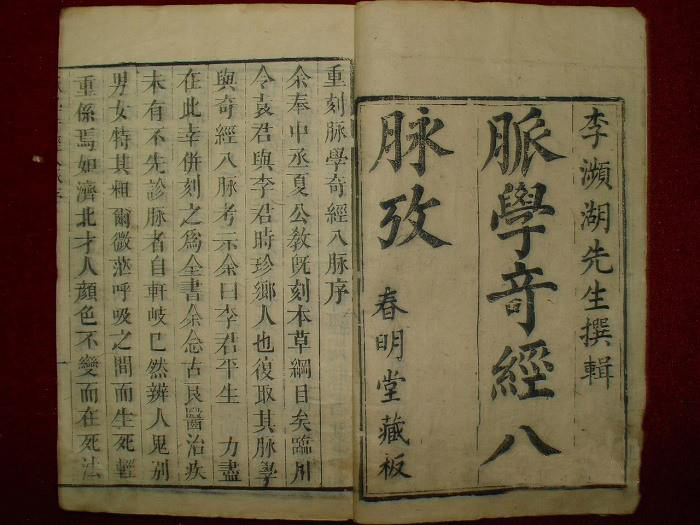 李瀕湖先生撰輯
脈學奇經八
脉攷
春明堂藏板
重刻脉學奇經八脉序
余奉中丞夏公教旣刻本草綱目矣臨川
令袁君與李君時珍鄉人也復取其脉學
與奇經八脉考示余曰李君平生 力盡
在此幸併刻之爲全書余念古良醫治疾
未有不先診脉者自軒岐已然辨人鬼別
男女特其粗爾微茫呼吸之間而生死輕
重係焉如濟北才人顏色不變而在死法